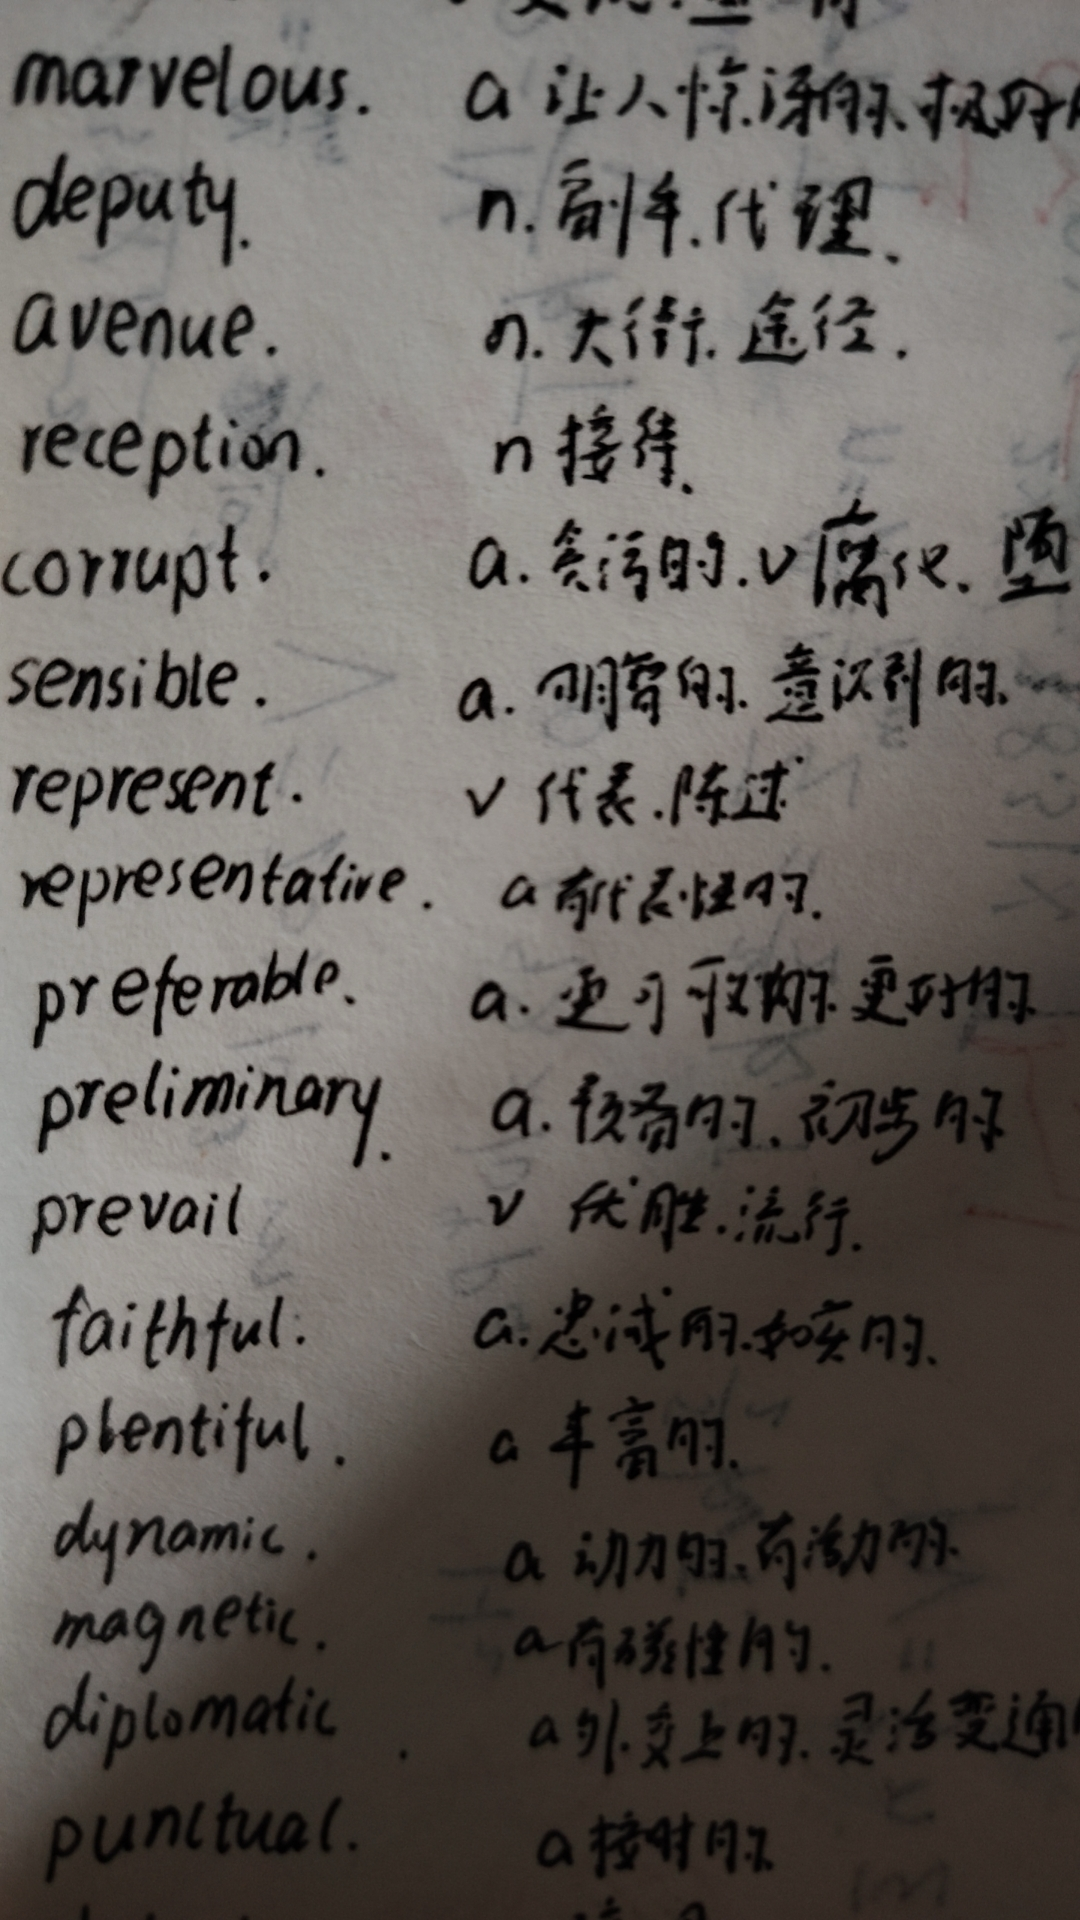 marvelous. a 让人惊讶的.极好
deputy. n.副手.代理.
avenue. n.大街.途径.
reception. n接待.
corrupt. a.贪污的.v腐化.堕
sensible. a.明智的.意识到的.
represent. v代表.陈述
representative. a有代表性的.
preferable. a.更可取的.更好的.
preliminary. a.预备的.初步的
prevail v优胜.流行.
faithful. a.忠诚的.如实的.
plentiful. a丰富的.
dynamic. a动力的.有活力的.
magnetic. a有磁性的.
diplomatic. a外交上的.灵活变通
punctual. a按时的.